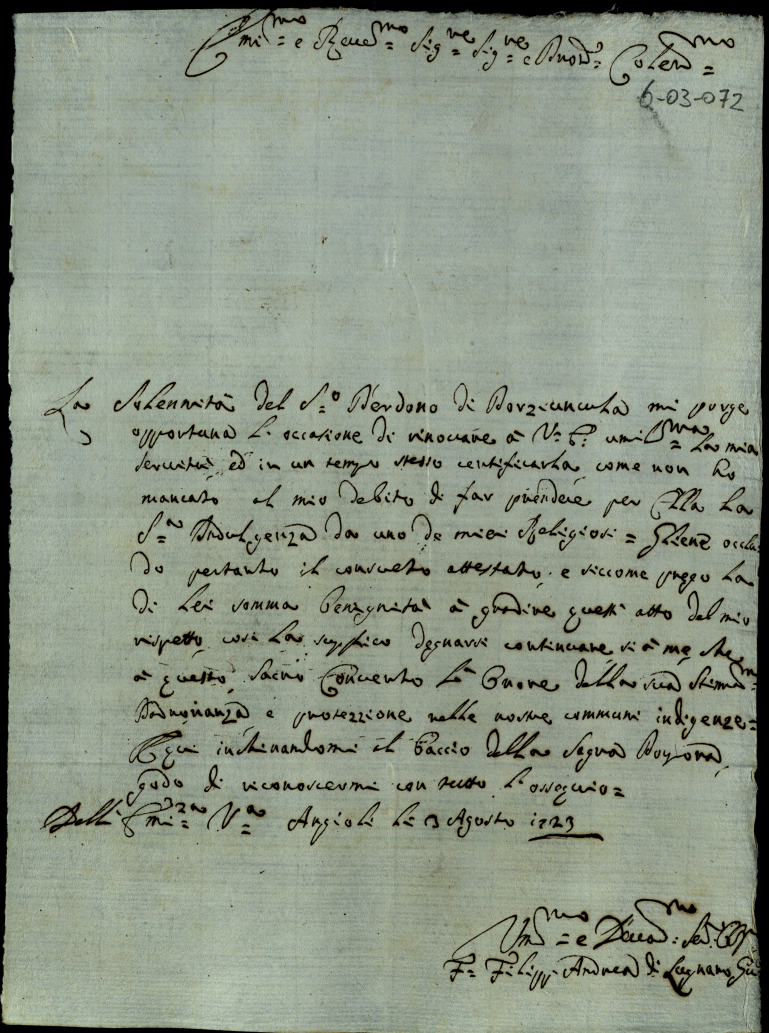 Emi^mo= e Reved^mo Sig^re= Sig^re= e Pron̄= Colend^mo=
6-03-072
La Solennità del S.^o Perdono di Porziuncula mi porge
opportuna l'occasione di rinovare à V.^a E.^a umil^ma= la mia
servitù, ed in un tempo stesso certificarla, come non ho
mancato al mio debito di far prendere per Ella la
S.^a Indulgenza da uno de miei Religiosi= Gliene occlu
do pertanto il consueto attestato, e siccome prego la
di Lei somma benignità à gradire questi atto del mio
rispetto, così la supplico degnarsi continuare sì à me, che
à questo Sacro Convento l'onore della sua Stim^ma=
Padronanza, e protezzione nelle nostre communi indigenze=
E qui inchinandomi al baccio della Sagra Porpora,
godo di riconoscermi con tutto l'ossequio=
Dell' Emi^za= V.^a Angioli li 3 Agosto 1723
Um^mo= e Devod^mo: Se.^r
F= Filipp. Andrea di Lugnano